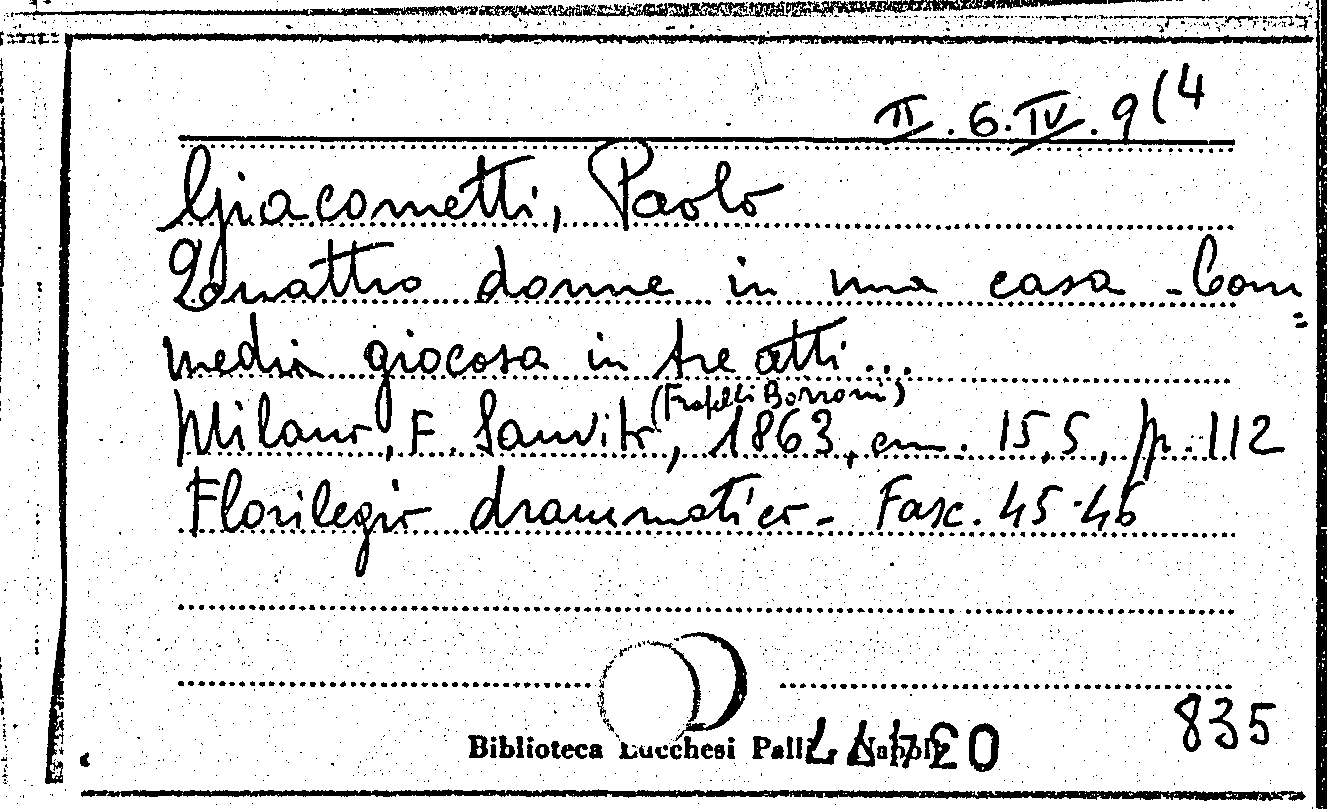 II.6.IV.9(4
Giacometti, Paolo
Quattro donne in una casa - Com=
media giocosa in tre atti...
(Fratelli Borroni)
Milano, F. Sanvito, 1863, cm. 15,5, pp. 112
Florilegio drammatico - Fasc. 45-46
835
Biblioteca Lucchesi Palli Napoli